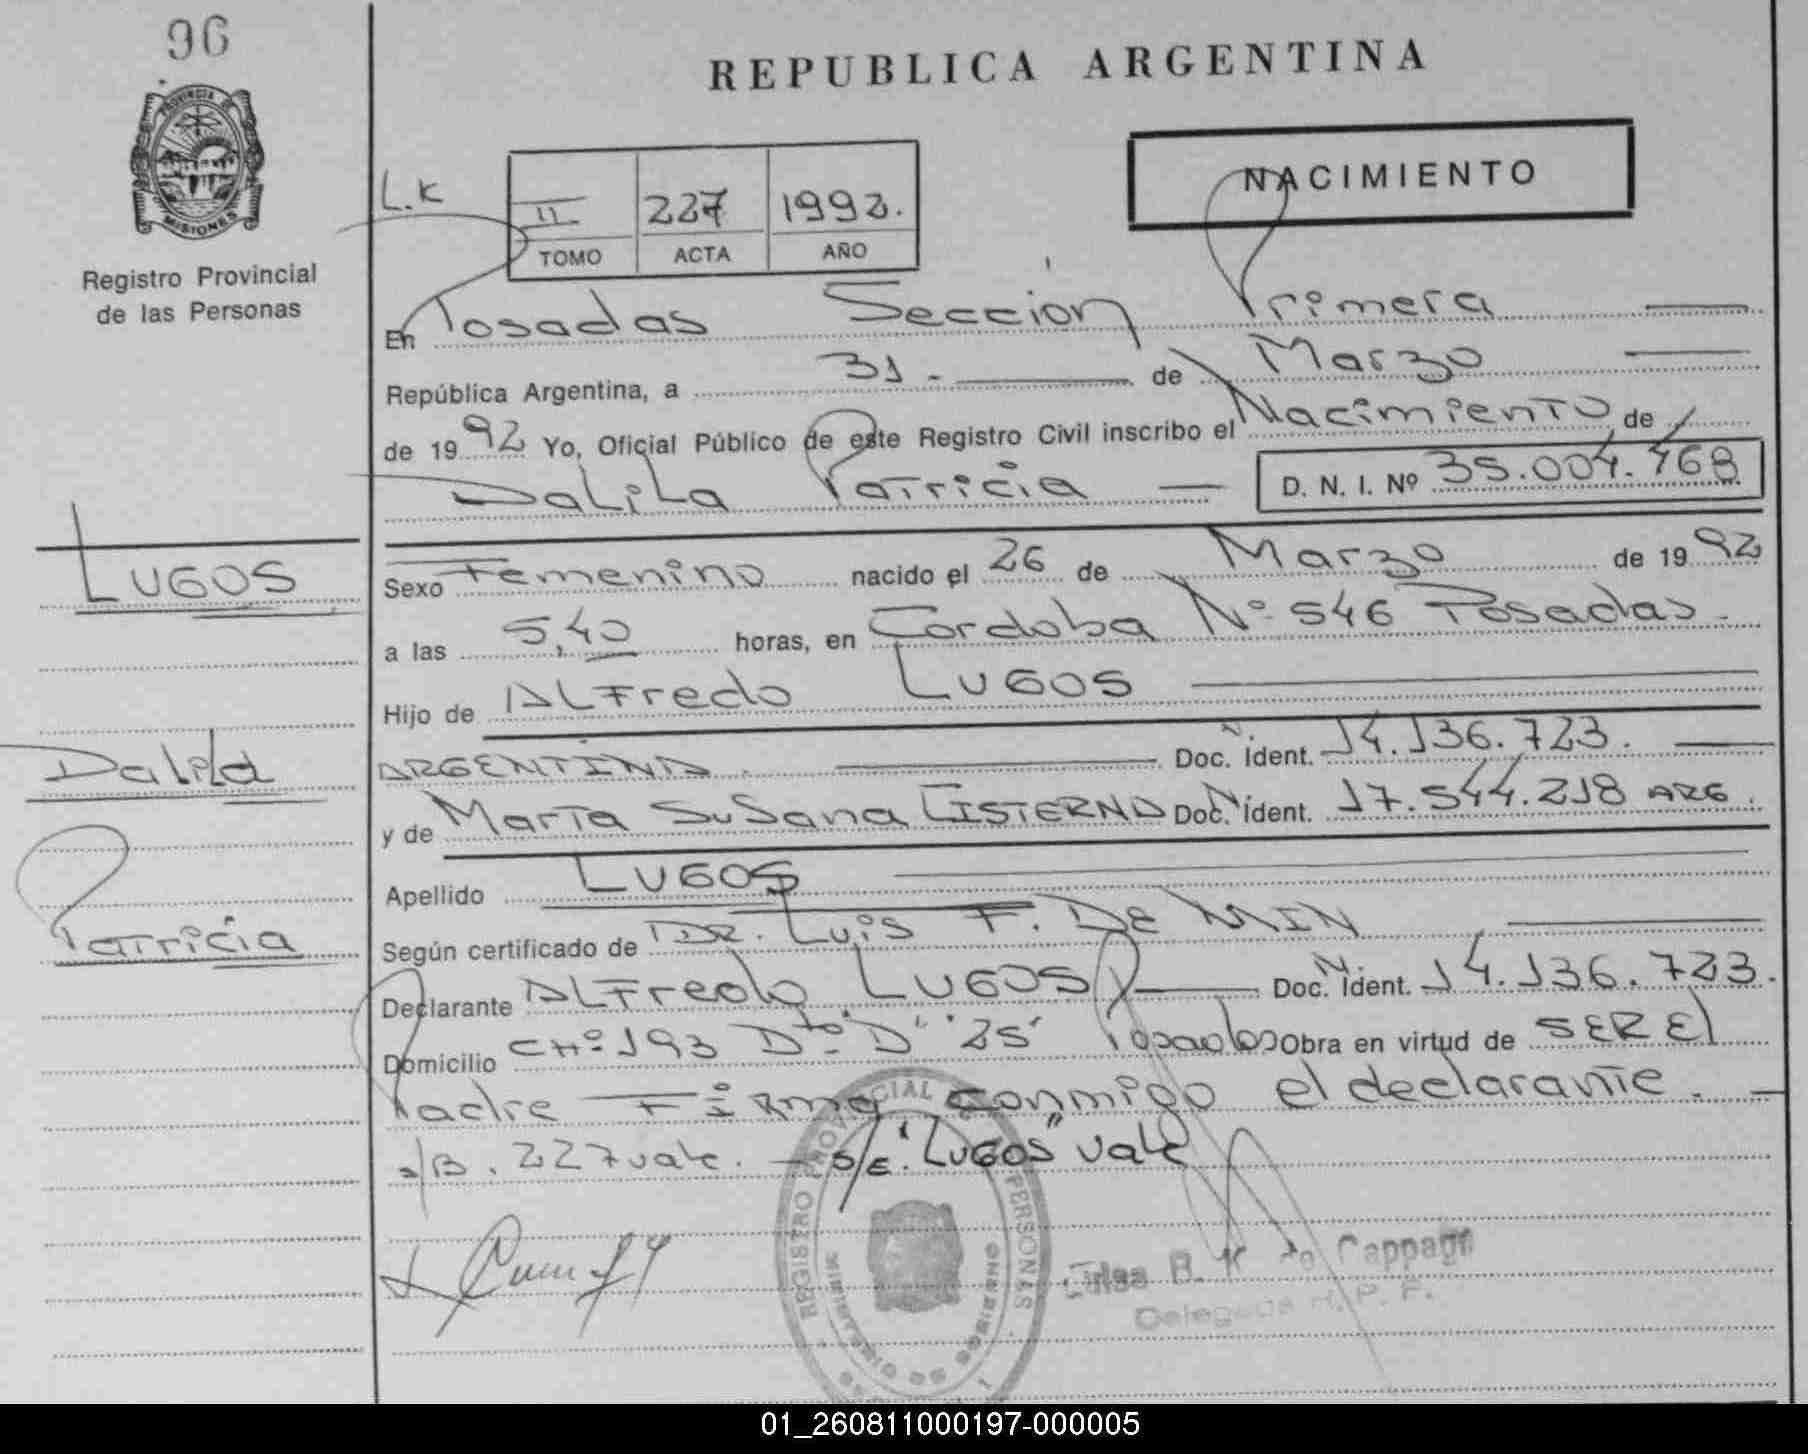 96
REPUBLICA ARGENTINA
PROVINCIA DE
MISIONES
Registro Provincial
de las Personas
L.K
II 227 1992.
TOMO ACTA AÑO
NACIMIENTO
En Posadas Seccion Primera
República Argentina, a 31 - de Marzo
de 1992 Yo, Oficial Público de este Registro Civil inscribo el Nacimiento de
Dalila Patricia D. N. I. Nº 35.004.468
LUGOS
Sexo Femenino nacido el 26 de Marzo de 1992
a las 5,40 horas, en Cordoba Nº 546 Posadas.
Hijo de ALFredo LUGOS
Dalila
ARGENTINA. Doc. Ident. N. 14.136.723.
y de Marta Susana CISTERNA Doc. Ident. N. 17.544.218 ARG.
Apellido LUGOS
Patricia
Según certificado de DR. Luis F. DE MIN
Declarante ALFredo LUGOS Doc. Ident. N. 14.136.723.
Domicilio CHº 193 Dto D "25" Posadas Obra en virtud de SER El
Padre Firma conmigo el declarante.
s/B. 227 vale. - s/E. "LUGOS" vale
REGISTRO PROVINCIAL DE PERSONAS
MINISTERIO DE GOBIERNO
de Cappagli
Delegada R. P. P.
01_260811000197-000005